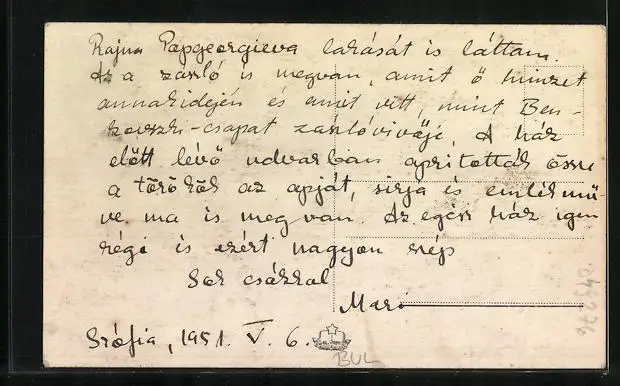 Rajna Papgeorgieva lakását is láttam.
Az a zászló is megvan, amit ő hímzet
annakidején és amit vitt, mint Ben-
kovszki-csapat zászlóvivője. A ház
előtt lévő udvarban aprították össze
a törökök az apját, sirja és emlékmű-
ve ma is megvan. Az egész ház igen
régi és ezért nagyon szép
Sok csókkal
Mari
Szófia, 1951. V. 6.
BUL